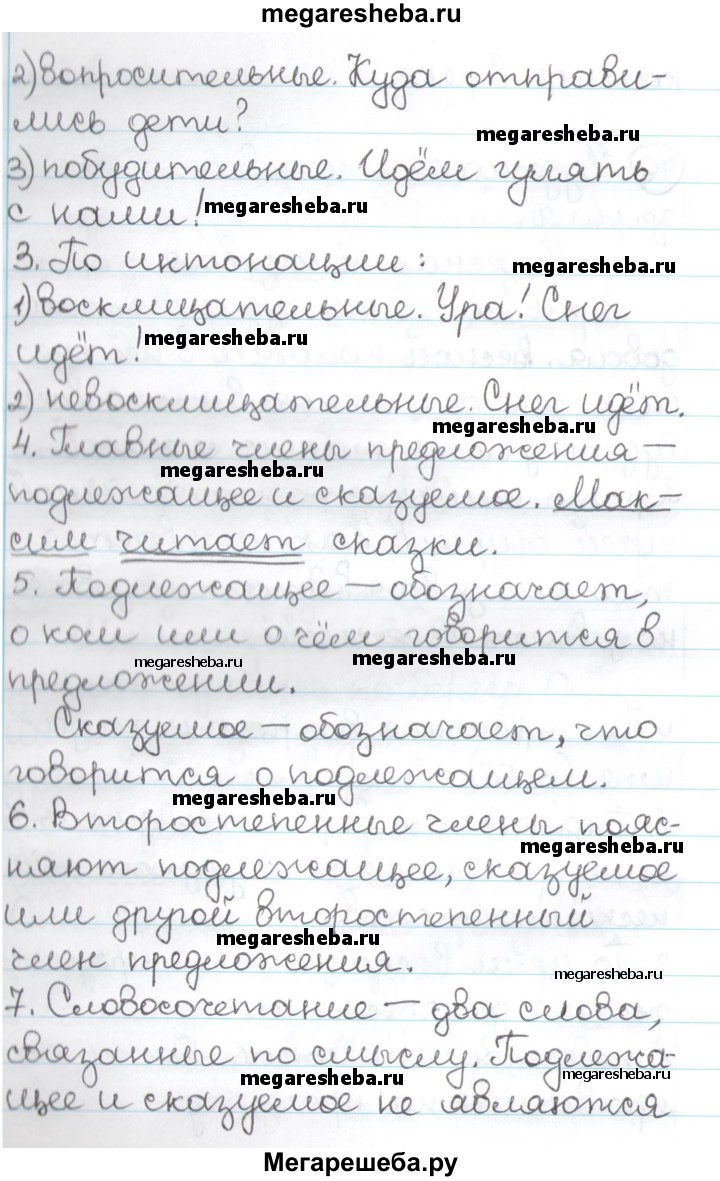 megaresheba.ru
2) вопросительные. Куда отправи-
лись дети?
megaresheba.ru
3) побудительные. Идём гулять
с нами!
megaresheba.ru
3. По интонации:
megaresheba.ru
1) восклицательные. Ура! Снег
идёт!
megaresheba.ru
2) невосклицательные. Снег идёт.
megaresheba.ru
4. Главные члены предложения —
megaresheba.ru
подлежащее и сказуемое. Мак-
сим читает сказки.
5. Подлежащее — обозначает,
о ком или о чём говорится в
megaresheba.ru
megaresheba.ru
предложении.
Сказуемое — обозначает, что
говорится о подлежащем.
megaresheba.ru
6. Второстепенные члены пояс-
megaresheba.ru
няют подлежащее, сказуемое
или другой второстепенный
megaresheba.ru
член предложения.
megaresheba.ru
7. Словосочетание — два слова,
связанные по смыслу. Подлежа-
megaresheba.ru
megaresheba.ru
щее и сказуемое не являются
Мегарешеба.ру